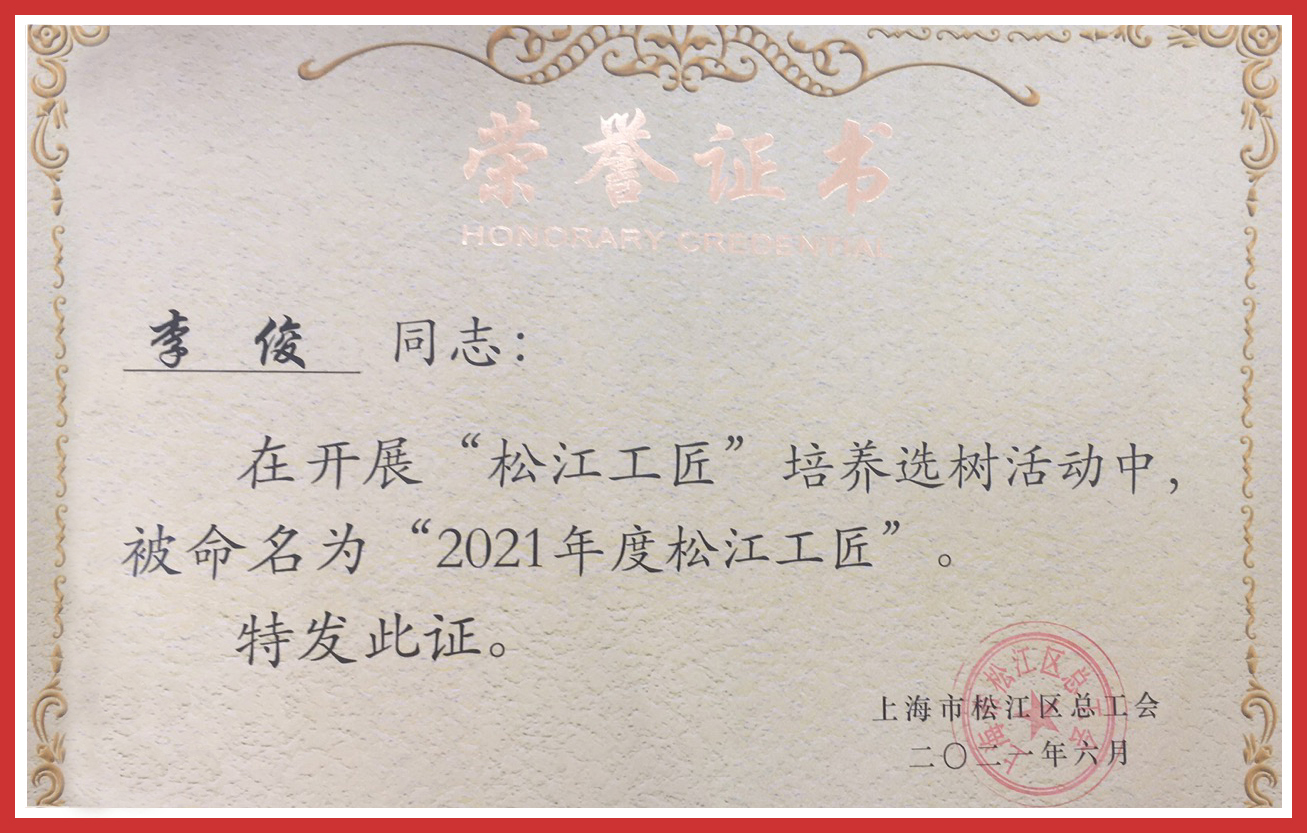 荣誉证书
HONORARY CREDENTIAL
李 俊 同志：
在开展“松江工匠”培养选树活动中，
被命名为“2021年度松江工匠”。
特发此证。
上海市松江区总工会
二〇二一年六月
上海市松江区总工会